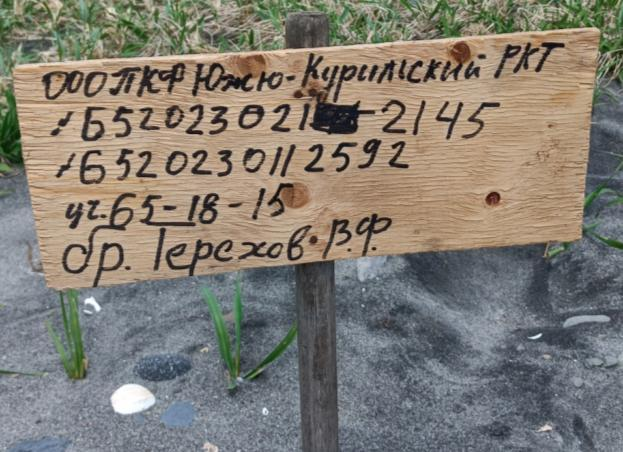 ООО ПКФ Южно-Курильский РКТ
№ 652023021 - 2145
№ 6520230112592
уч. 65-18-15
бр. Терехов. В.Ф.